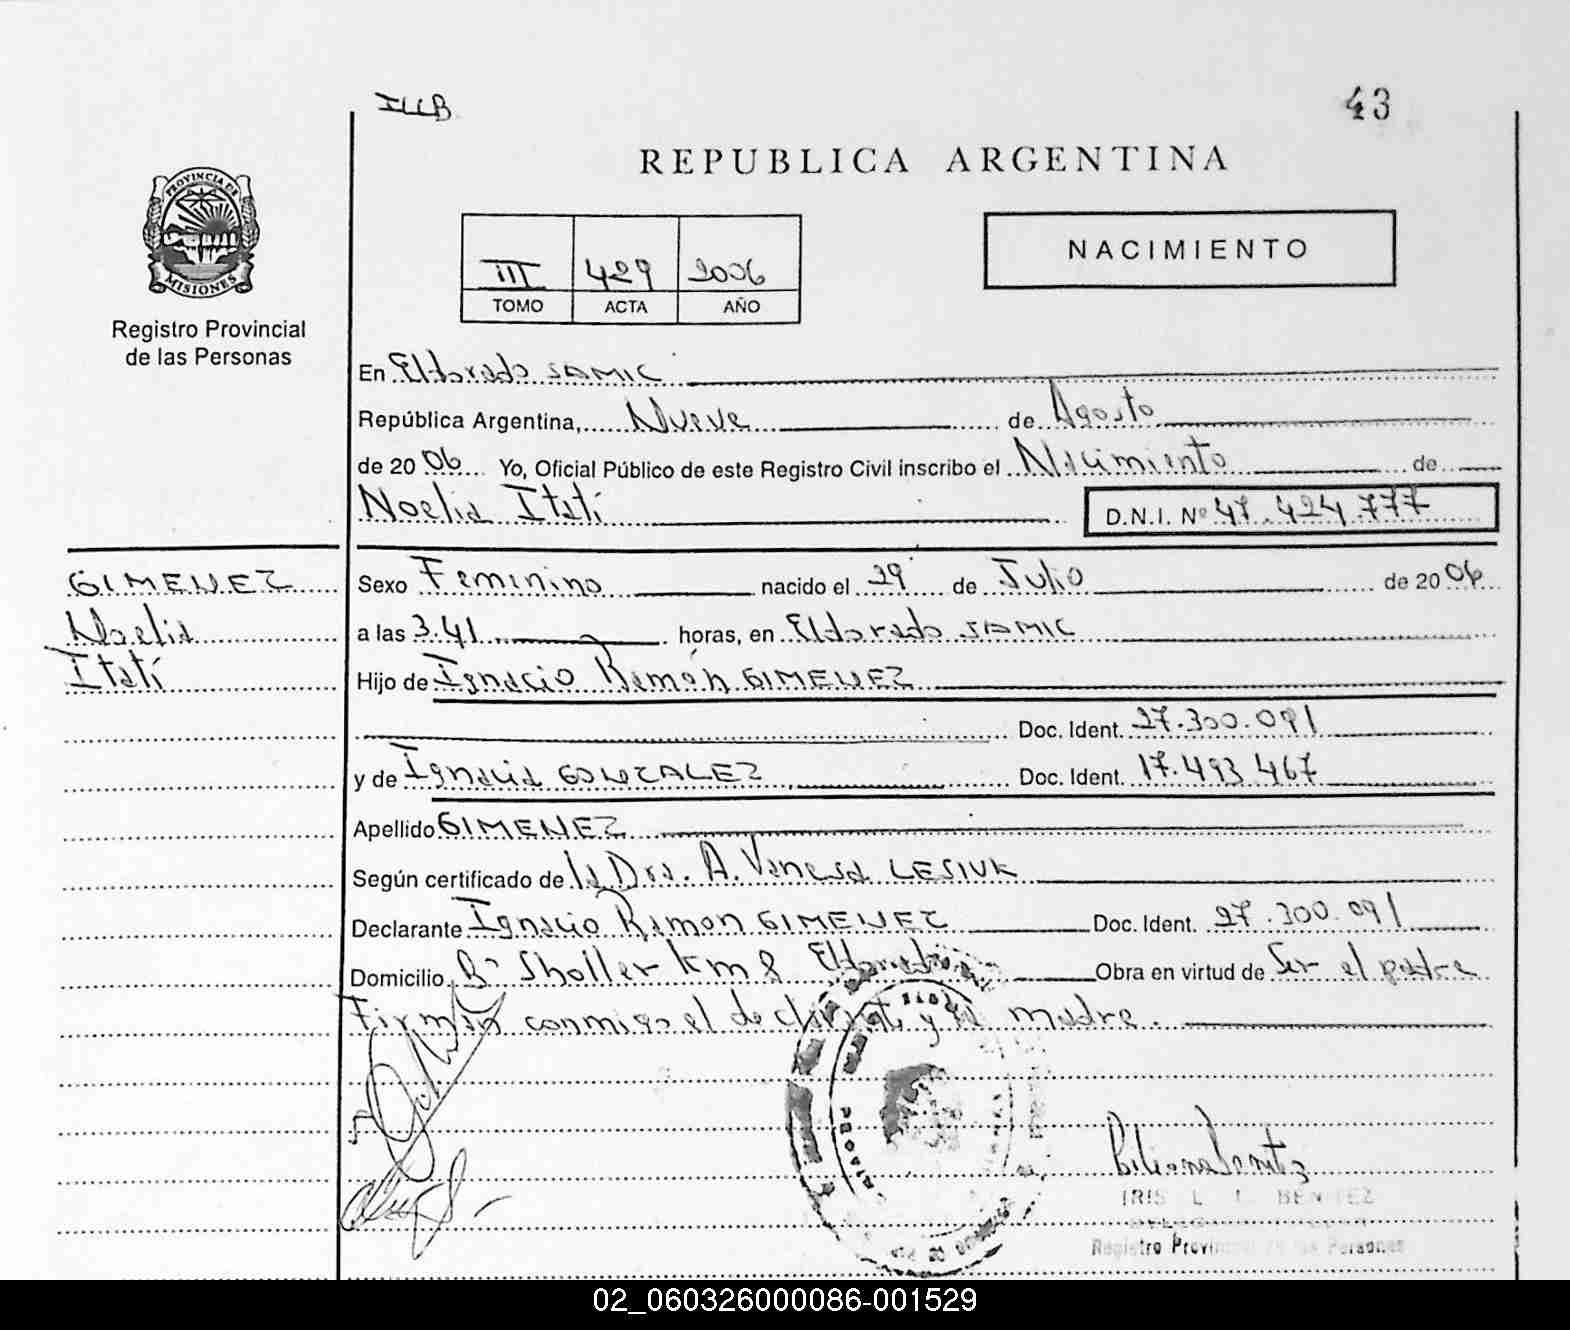 ILLB
43
REPUBLICA ARGENTINA
PROVINCIA DE
MISIONES
Registro Provincial
de las Personas
III 429 2006
TOMO ACTA AÑO
NACIMIENTO
En Eldorado SAMIC
República Argentina, Nueve de Agosto
de 20 06 Yo, Oficial Público de este Registro Civil inscribo el Nacimiento de
Noelia Itatí D.N.I. Nº 47.424.777
GIMENEZ
Noelia
Itatí
Sexo Feminino nacido el 29 de Julio de 20 06
a las 3.41 horas, en Eldorado SAMIC
Hijo de Ignacio Ramón GIMENEZ
Doc. Ident. 27.300.091
y de Ignacia GONZALEZ Doc. Ident. 17.493.467
Apellido GIMENEZ
Según certificado de la Dra. A. Vanesa LESIUK
Declarante Ignacio Ramon GIMENEZ Doc. Ident. 27.300.091
Domicilio Bº Sholler Km 8 Eldorado Obra en virtud de Ser el padre
Firman conmigo el declarante y la madre.
IRIS L. BENITEZ
Registro Provincial de las Personas
02_060326000086-001529